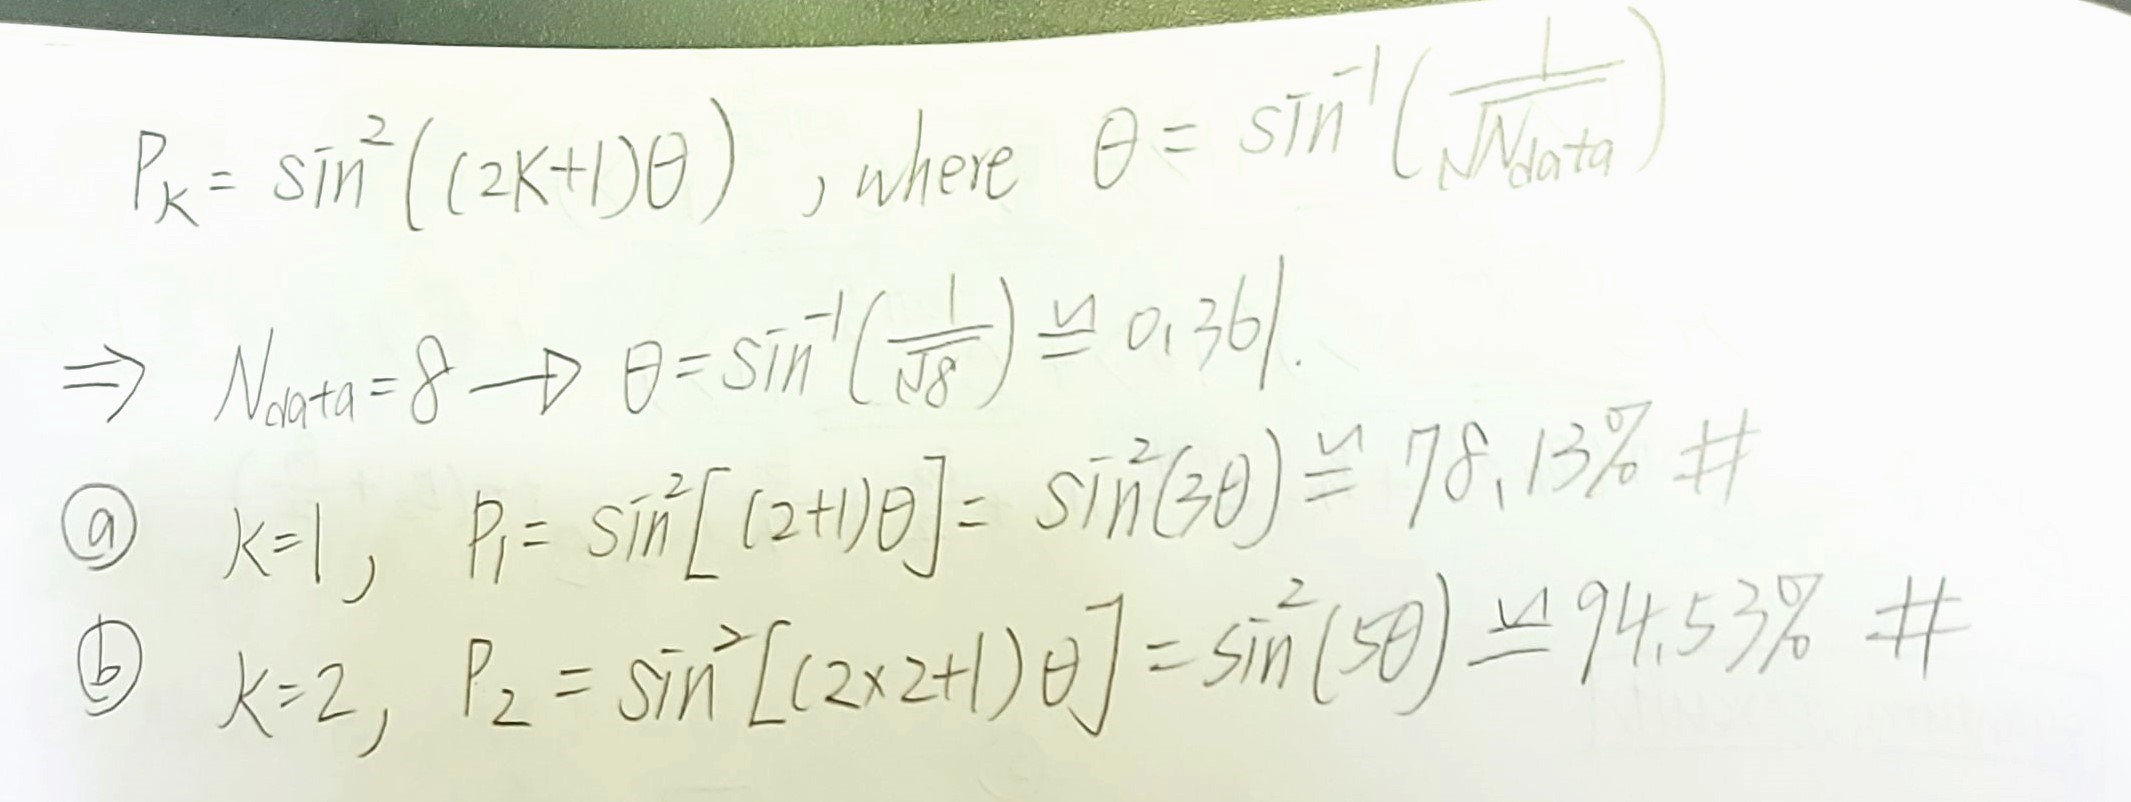 P_K = sin²((2K+1)θ) , where θ = sin⁻¹(1/√N_data)
⇒ N_data = 8 → θ = sin⁻¹(1/√8) ≌ 0.361.
ⓐ K=1, P₁ = sin²[(2+1)θ] = sin²(3θ) ≌ 78.13% #
ⓑ K=2, P₂ = sin²[(2×2+1)θ] = sin²(5θ) ≌ 94.53% #